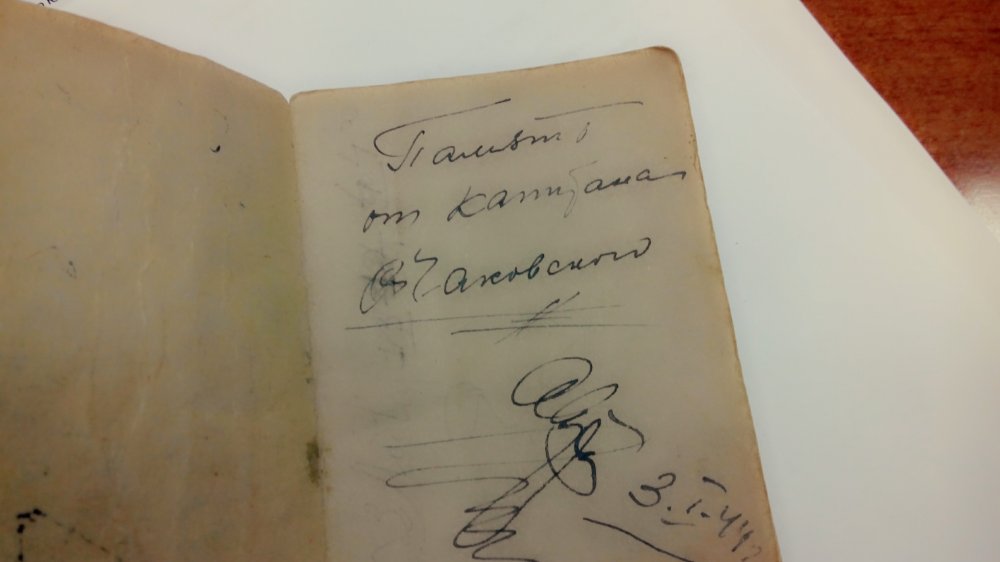 Память
от капитана
Чаковского
3.I.44г